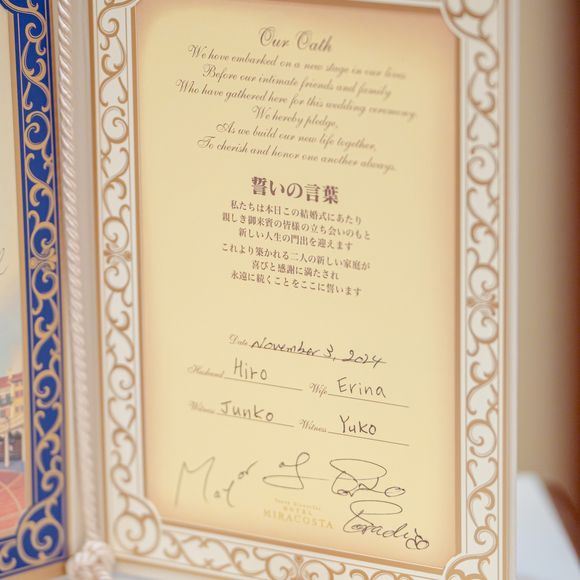 Our Oath
We have embarked on a new stage in our lives
Before our intimate friends and family
Who have gathered here for this wedding ceremony.
We hereby pledge,
As we build our new life together,
To cherish and honor one another always.
誓いの言葉
私たちは本日この結婚式にあたり
親しき御来賓の皆様の立ち会いのもと
新しい人生の門出を迎えます
これより築かれる二人の新しい家庭が
喜びと感謝に満たされ
永遠に続くことをここに誓います
Date November 3, 2024
Husband Hiro Wife Erina
Witness Junko Witness Yuko
Mayor of Porto Paradiso
Tokyo DisneySea
HOTEL
MIRACOSTA